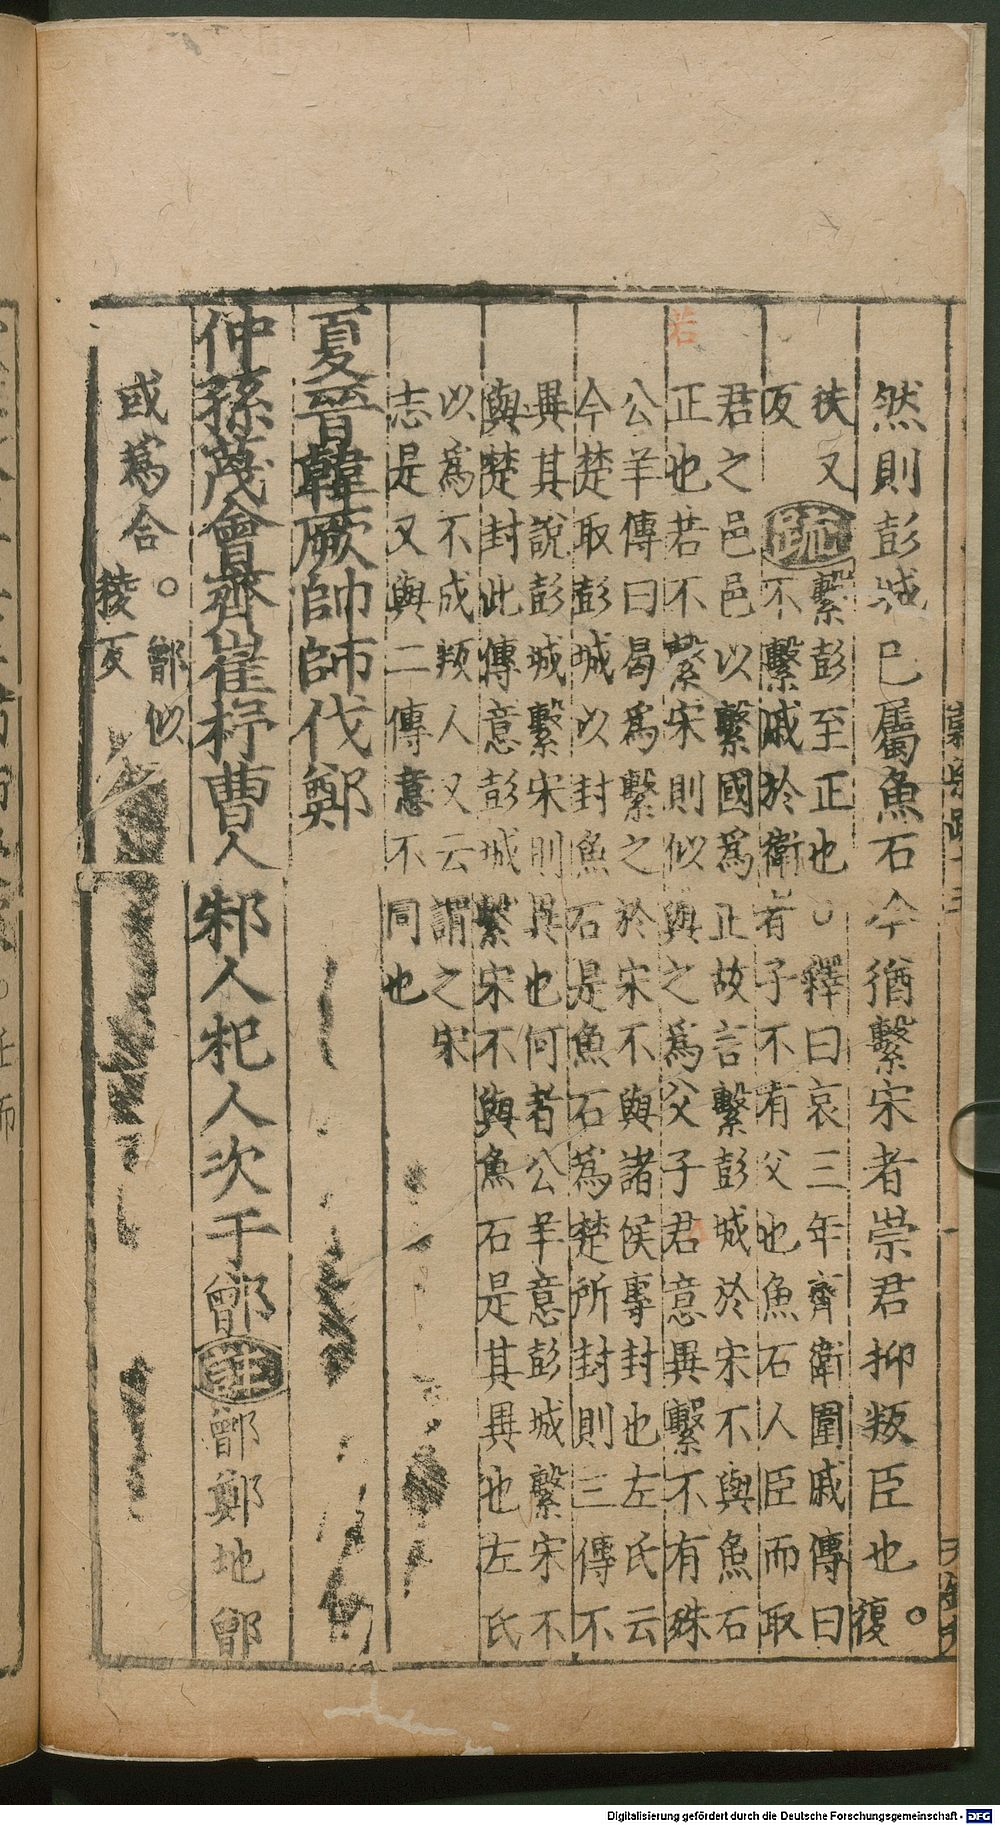 然則彭城已屬魚石今猶繫宋者崇君抑叛臣也。復
扶又
反
疏
繫彭至正也。釋曰哀三年齊衛圍戚傳曰
不繫戚於衛者子不有父也魚石人臣而取
君之邑邑以繫國爲正故言繫彭城於宋不與魚石
正也若不繫宋則似與之爲父子君意異繫不有殊
公羊傳曰曷爲繫之於宋不與諸侯專封也左氏云
今楚取彭城以封魚石是魚石爲楚所封則三傳不
異其說彭城繫宋則異也何者公羊意彭城繫宋不
與楚封此傳意彭城繫宋不與魚石是其異也左氏
以爲不成叛人又云謂之宋
志是又與二傳意不同也
夏晉韓厥帥師伐鄭
仲孫蔑會齊崔杼曹人邾人杞人次于鄫
註
鄫鄭地鄫
或爲合。鄫似
稜反
若
Digitalisierung gefördert durch die Deutsche Forschungsgemeinschaft - DFG